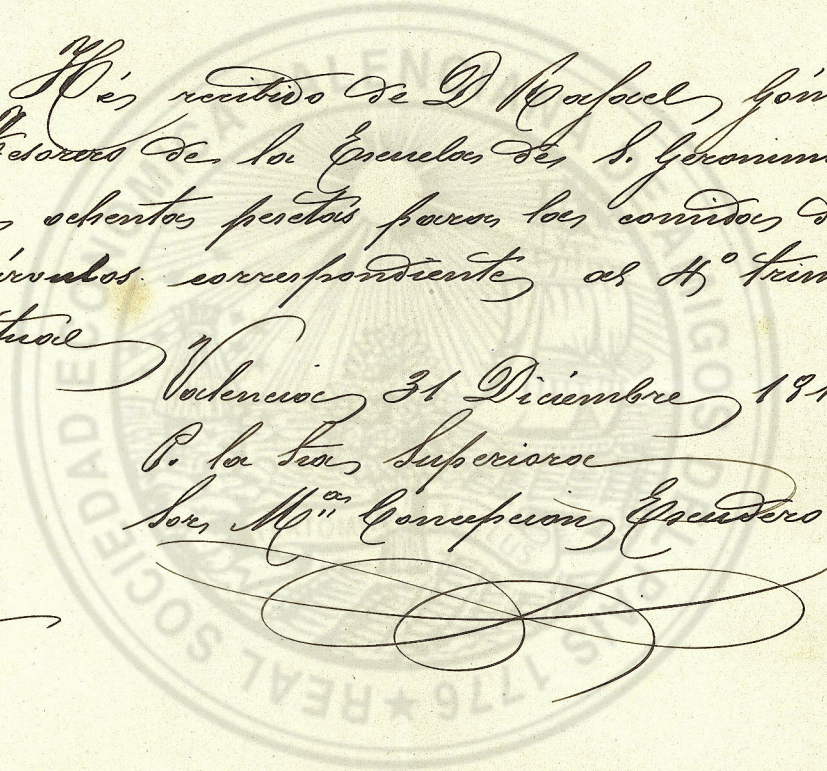 Hé recibido de D Rafael Góm
Tesorero de la Escuela de S. Geronim
ochenta pesetas para la comida d
párvulos correspondiente al 4º trim
tual
Valencia 31 Diciembre 191
P. la Sra Superiora
Sor Mª Concepcion Escudero
REAL SOCIEDAD ECONOMICA VALENCIANA DE AMIGOS DEL PAIS 1776